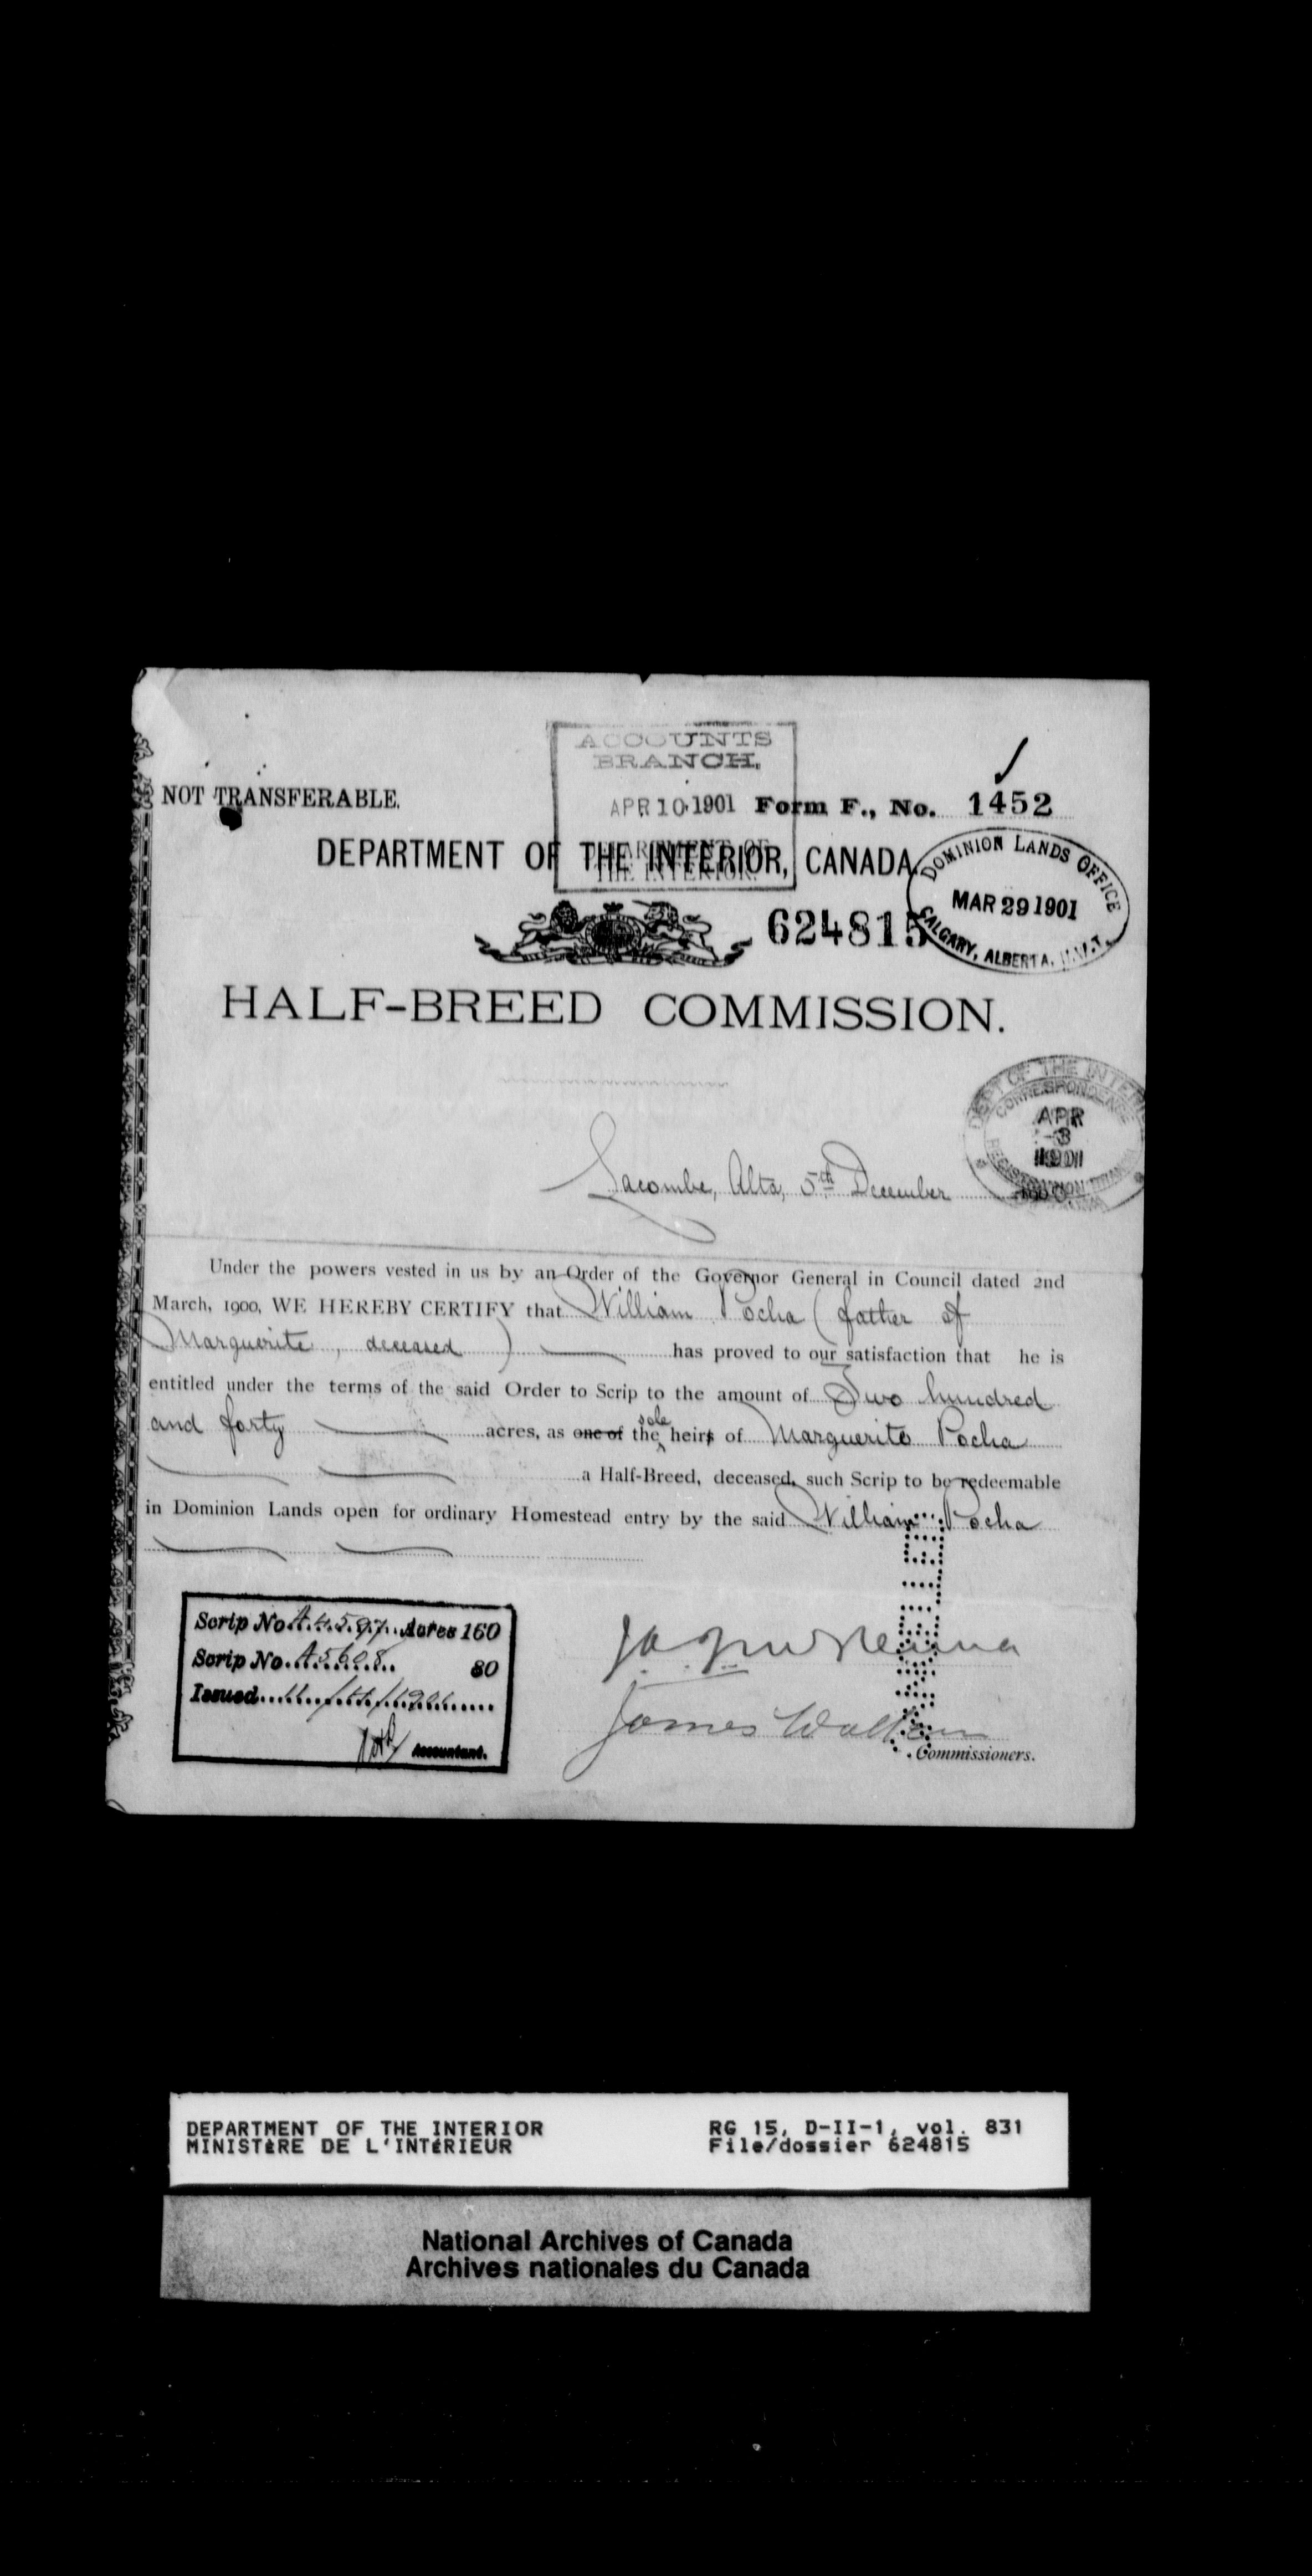 ACCOUNTS
BRANCH.
APR 10 1901
NOT TRANSFERABLE.
Form F., No. 1452
DEPARTMENT OF THE INTERIOR, CANADA
DOMINION LANDS OFFICE
MAR 29 1901
CALGARY, ALBERTA, N.W.T.
624815
HALF-BREED COMMISSION.
DEPT OF THE INTERIOR
CORRESPONDENCE
APR
3
1901
Lacombe, Alta, 5th December 1900.
Under the powers vested in us by an Order of the Governor General in Council dated 2nd
March, 1900, WE HEREBY CERTIFY that William Pocha (father of
Marguerite, deceased) has proved to our satisfaction that he is
entitled under the terms of the said Order to Scrip to the amount of Two hundred
and forty acres, as one of the sole heirs of Marguerite Pocha
a Half-Breed, deceased, such Scrip to be redeemable
in Dominion Lands open for ordinary Homestead entry by the said William Pocha
Scrip No. A.4597 Acres 160
Scrip No. A5608 80
Issued 11/4/1901
Accountant.
CANCELLED
J. A. J. McKenna
James Walker
Commissioners.
DEPARTMENT OF THE INTERIOR
MINISTÈRE DE L'INTÉRIEUR
RG 15, D-II-1, vol. 831
File/dossier 624815
National Archives of Canada
Archives nationales du Canada